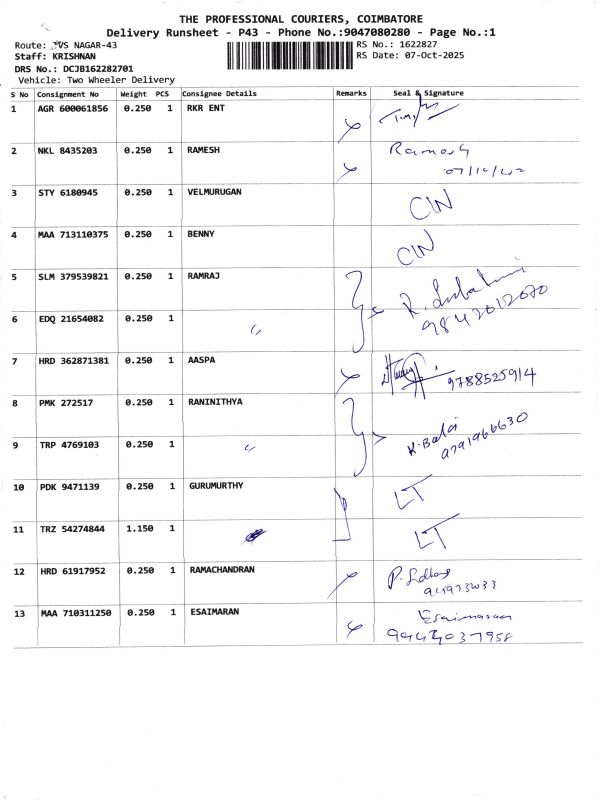 THE PROFESSIONAL COURIERS, COIMBATORE
Delivery Runsheet - P43 - Phone No.:9047080280 - Page No.:1
Route: TVS NAGAR-43
RS No.: 1622827
Staff: KRISHNAN
RS Date: 07-Oct-2025
DRS No.: DCJB162282701
Vehicle: Two Wheeler Delivery
S No Consignment No Weight PCS Consignee Details Remarks Seal & Signature
1 AGR 600061856 0.250 1 RKR ENT
2 NKL 8435203 0.250 1 RAMESH Ramesh
3 STY 6180945 0.250 1 VELMURUGAN CIN
4 MAA 713110375 0.250 1 BENNY CIN
5 SLM 379539821 0.250 1 RAMRAJ
6 EDQ 21654082 0.250 1 〃 9842012070
7 HRD 362871381 0.250 1 AASPA 9788525914
8 PMK 272517 0.250 1 RANINITHYA
9 TRP 4769103 0.250 1 〃 K. Balaji 9791966630
10 PDK 9471139 0.250 1 GURUMURTHY LT
11 TRZ 54274844 1.150 1 LT
12 HRD 61917952 0.250 1 RAMACHANDRAN
13 MAA 710311250 0.250 1 ESAIMARAN Esaimaran